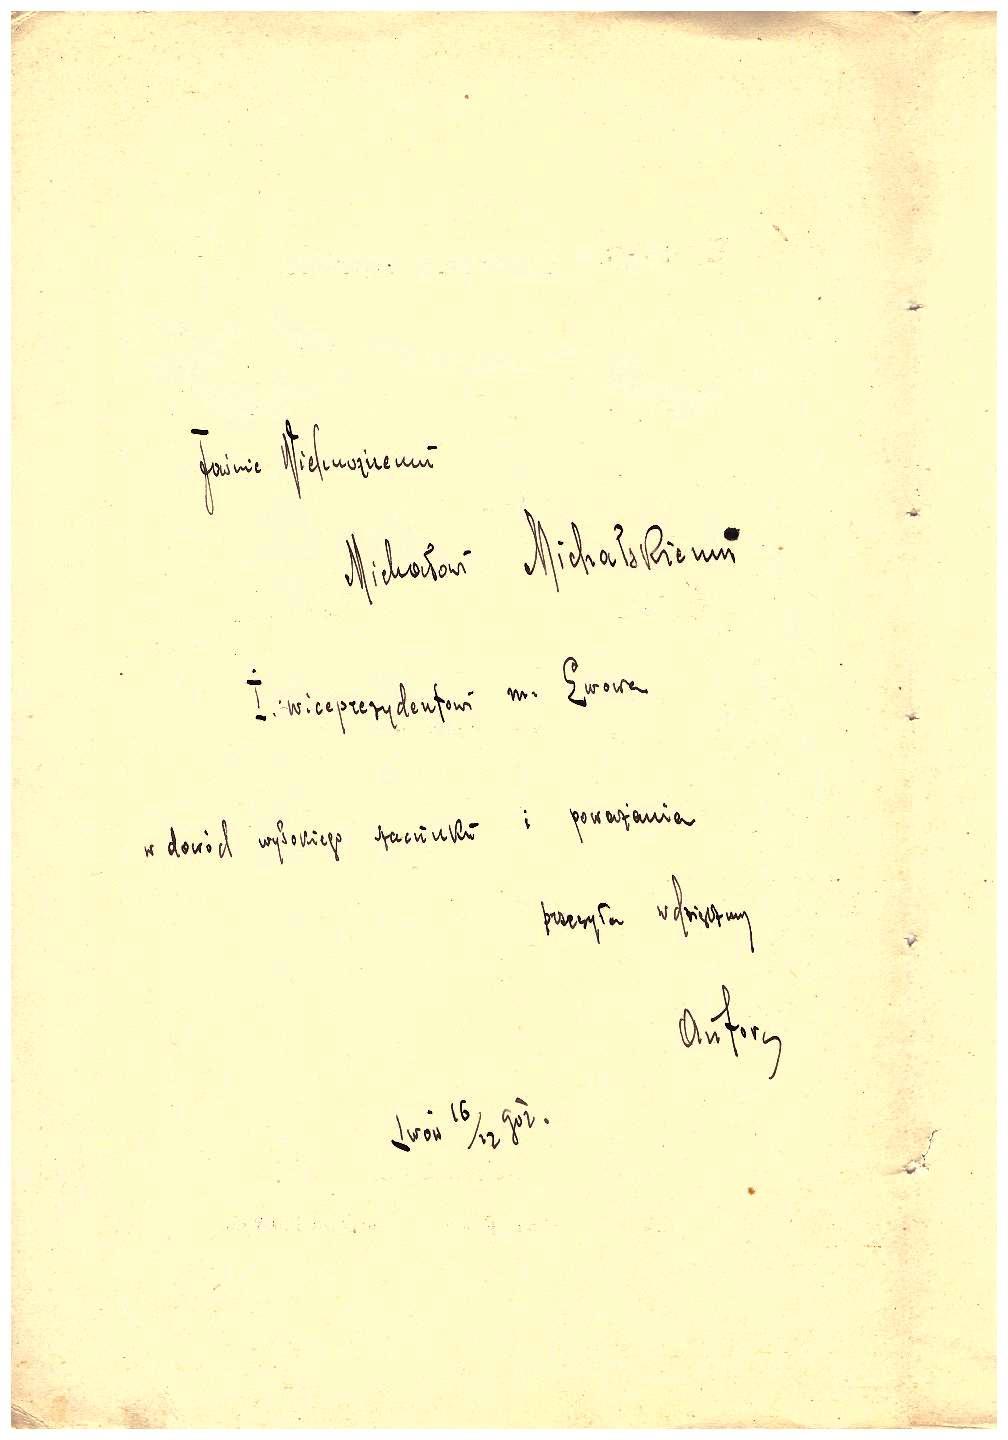 Jaśnie Wielmożnemu
Michałowi Michalskiemu
I. wiceprezydentowi m. Lwowa
w dowód wysokiego szacunku i poważania
przesyła wdzięczny
Autor
Lwów 16/12